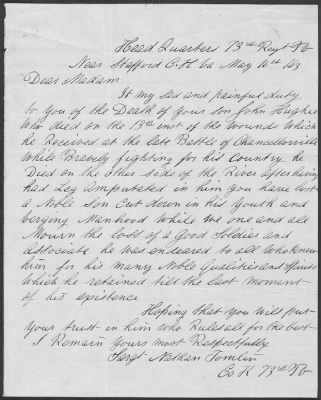 Head Quarters 73rd Regt
Near Stafford C.H. Va May 16th 63
Dear Madam
It my sad and painful duty
to You of the Death of Your son John Hughes
Who died on the 13th inst of the Wounds Which
he Received at the late Battle of Chancellorville
While Bravely fighting for his Country he
Died on the other side of the River after having
had Leg Amputated in him You have lost
a Noble Son Cut down in his Youth and
Manhood While We one and all
Mourn the loss of a Good Soldier and
Associate he was endeared to all who knew
him for his many Noble Qualities and Spirits
Which he retained till the last moment
of his existence
Hoping that You will put
Your trust in him who Rules all for the best
I Remain Yours most Respectfully
Sargt Nathan Tomlin
Co K 73rd